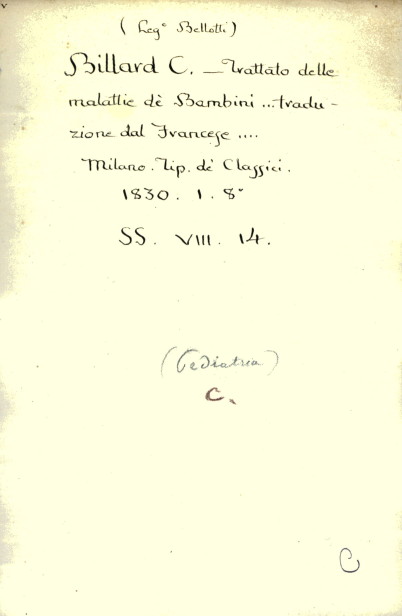 (Leg° Bellotti)
Billard C. — Trattato delle
malattie dè Bambini ... tradu-
zione dal Francese ....
Milano. Tip. dè Classici.
1830. 1. 8°
SS. VIII. 14.
(Pediatria)
C.
C